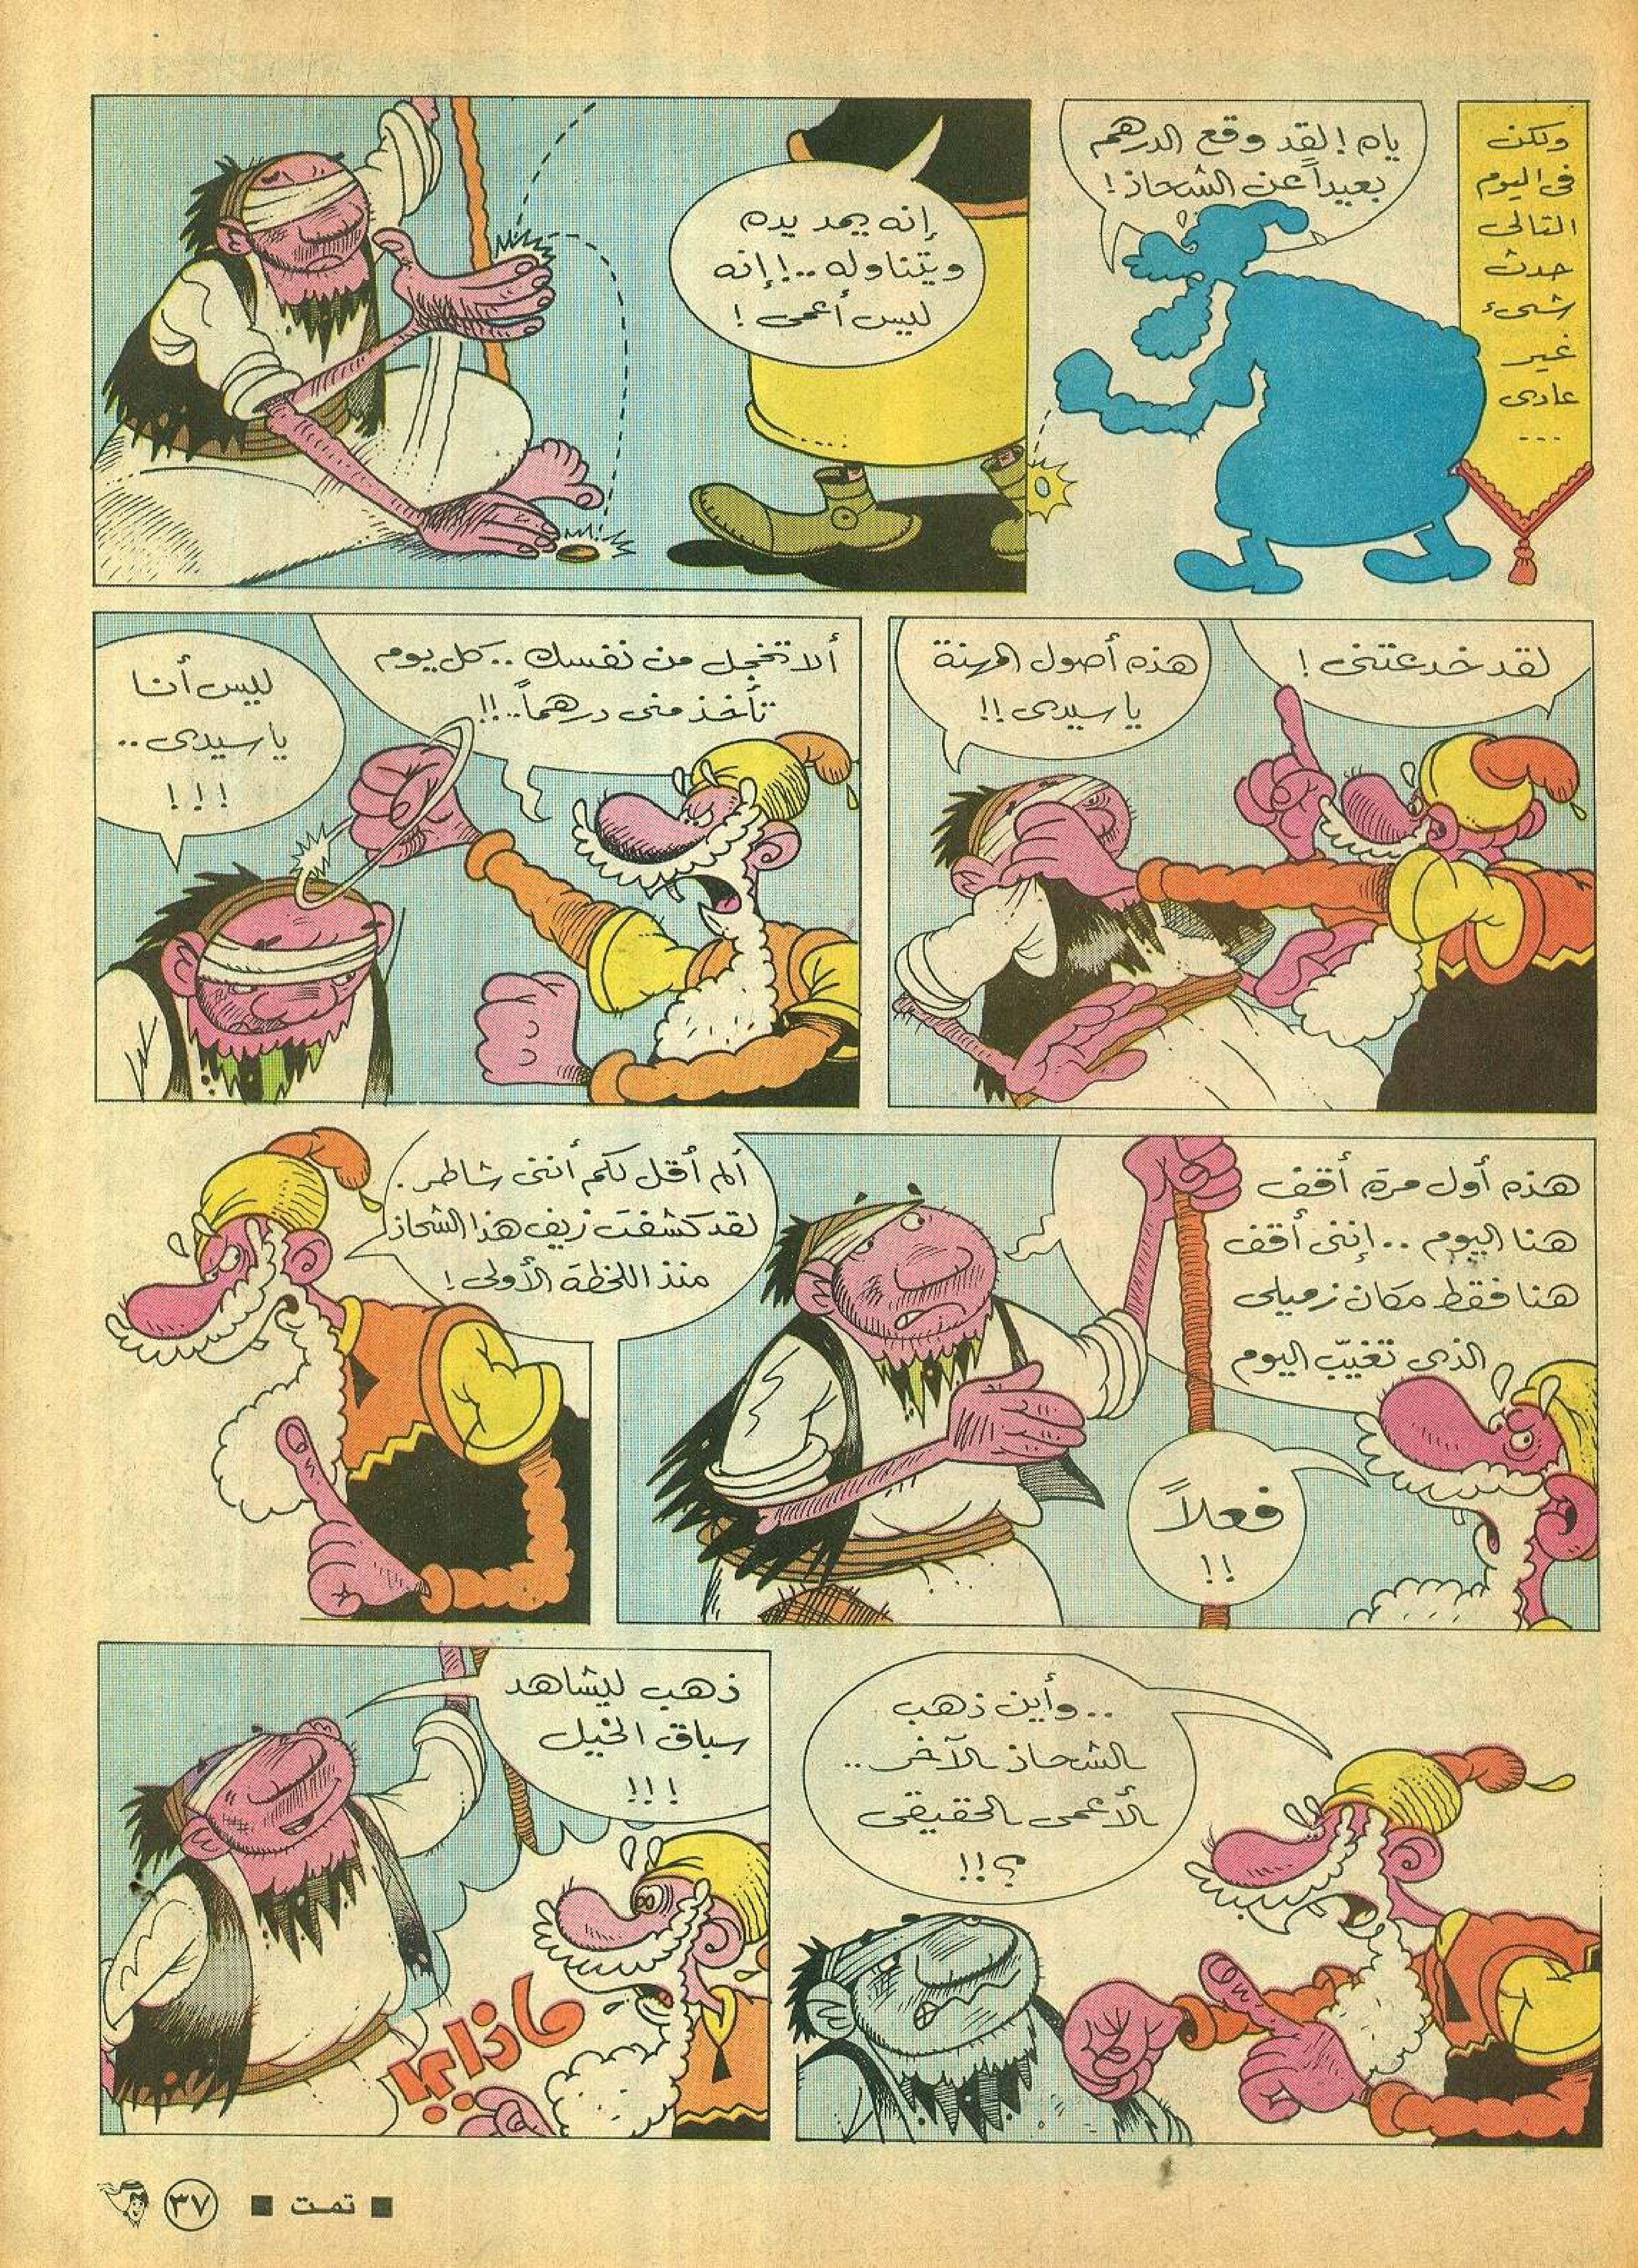 ولكن
فى اليوم
التالى
حدث
شىء
غير
عادى
...
ياه ! لقد وقع الدرهم
بعيداً عن الشحاذ !
إنه يمد يده
ويتناوله ..! إنه
ليس أعمى !
لقد خدعتنى !
هذه أصول المهنة
يا سيدى !!
ألا تخجل من نفسك .. كل يوم
تأخذ منى درهماً ..!!
ليس أنا
يا سيدى ..
!!!
هذه أول مرة أقف
هنا اليوم .. إننى أقف
هنا فقط مكان زميلى
الذى تغيّب اليوم
فعلاً
!!
ألم أقل لكم أننى شاطر .
لقد كشفت زيف هذا الشحاذ
منذ اللحظة الأولى !
.. وأين ذهب
الشحاذ الآخر ..
الأعمى الحقيقى
؟!!
ذهب ليشاهد
سباق الخيل
!!!
ماذا ؟!
■ تمت ■
٣٧